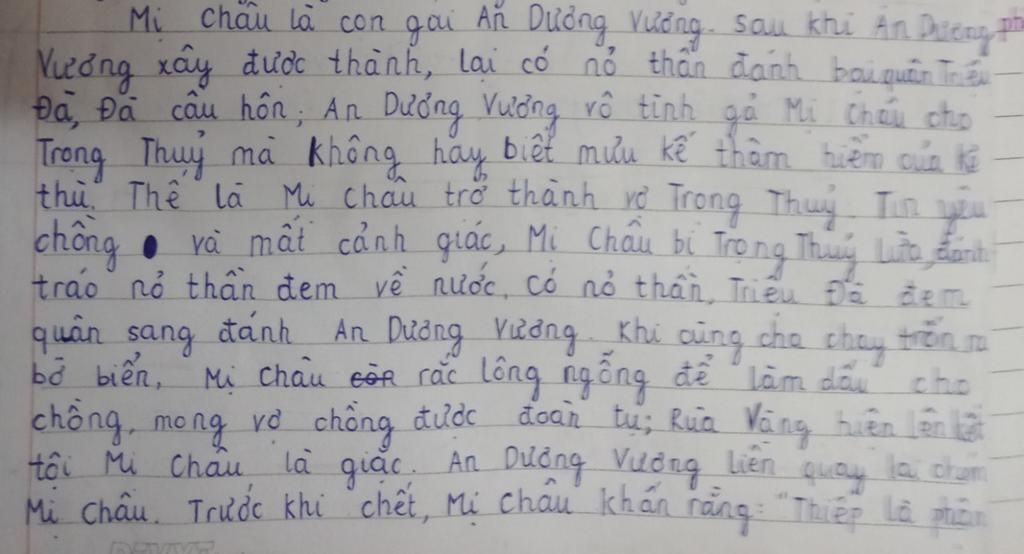 Mị Châu là con gái An Dương Vương. Sau khi An Dương
Vương xây được thành, lại có nỏ thần đánh bại quân Triệu
Đà, Đà cầu hôn; An Dương Vương vô tình gả Mị Châu cho
Trọng Thuỷ mà không hay biết mưu kế thâm hiểm của kẻ
thù. Thế là Mị Châu trở thành vợ Trọng Thuỷ. Tin yêu
chồng và mất cảnh giác, Mị Châu bị Trọng Thuỷ lừa, đánh
tráo nỏ thần đem về nước. Có nỏ thần, Triệu Đà đem
quân sang đánh An Dương Vương. Khi cùng cha chạy trốn ra
bờ biển, Mị Châu rắc lông ngỗng để làm dấu cho
chồng, mong vợ chồng được đoàn tụ; Rùa Vàng hiện lên kết
tội Mị Châu là giặc. An Dương Vương liền quay lại chém
Mị Châu. Trước khi chết, Mị Châu khấn rằng: "Thiếp là phận